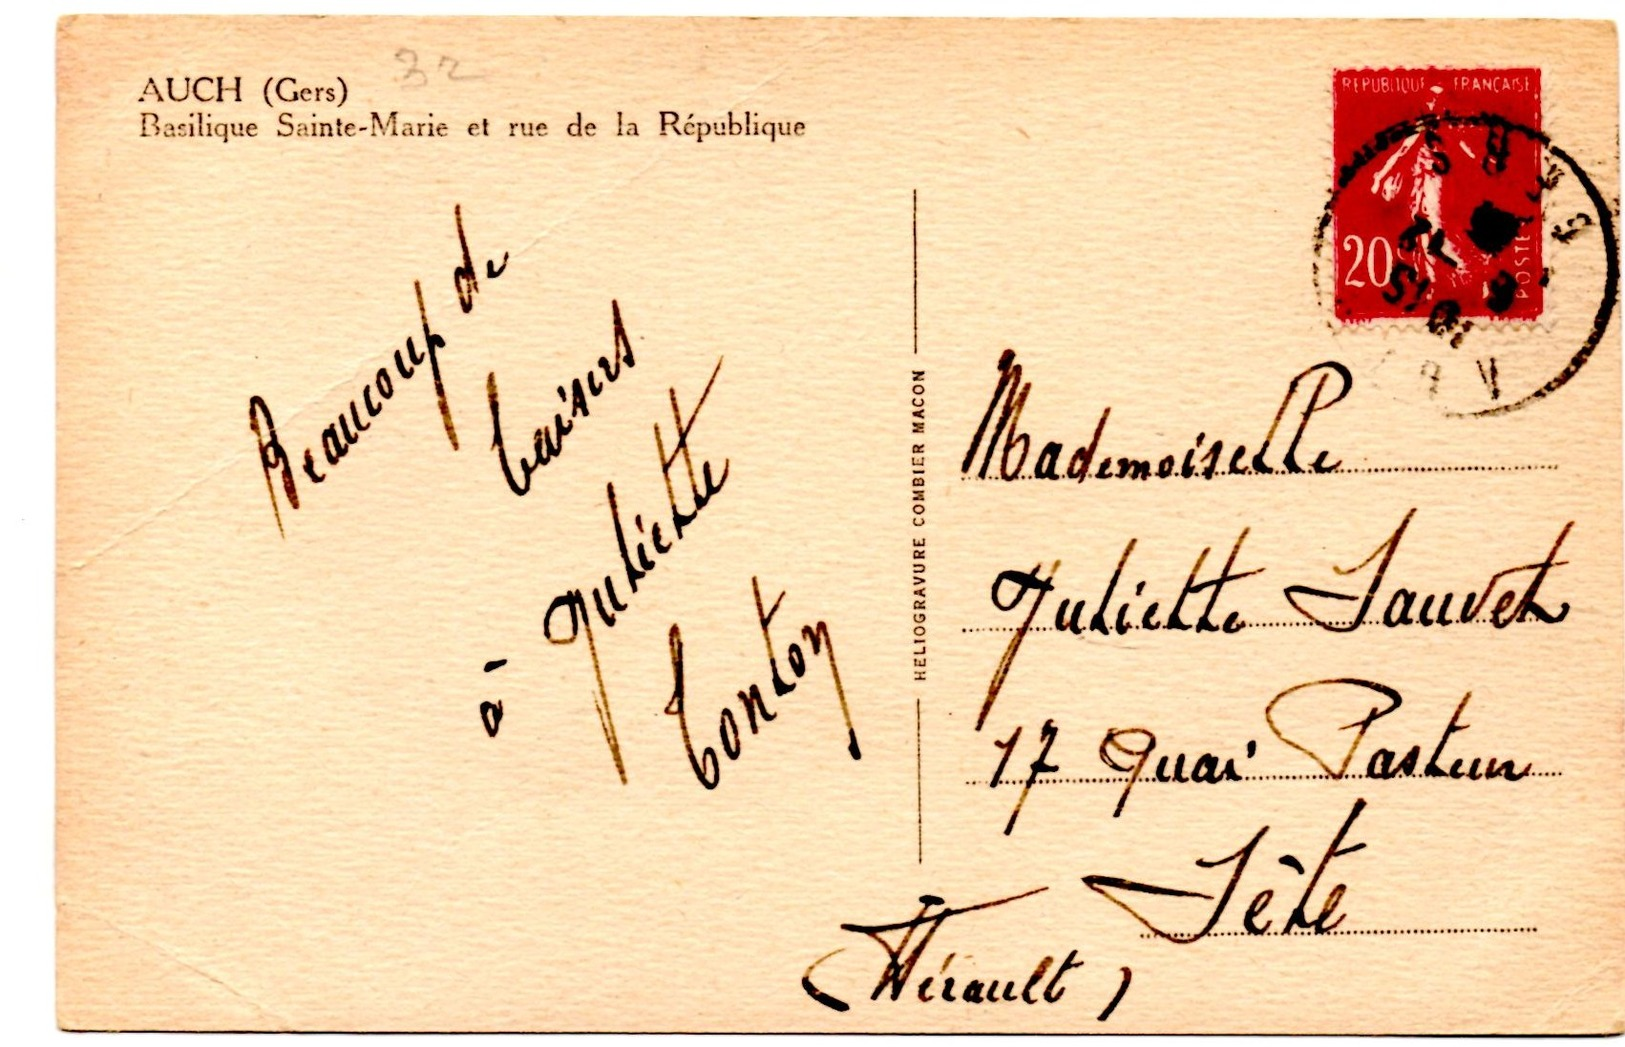 AUCH (Gers)
32
Basilique Sainte-Marie et rue de la République
Beaucoup de
baisers
à Juliette
Tonton
HELIOGRAVURE COMBIER MACON
REPUBLIQUE FRANÇAISE
20c
POSTES
Mademoiselle
Juliette Sauvet
17 Quai Pasteur
Sète
(Hérault)